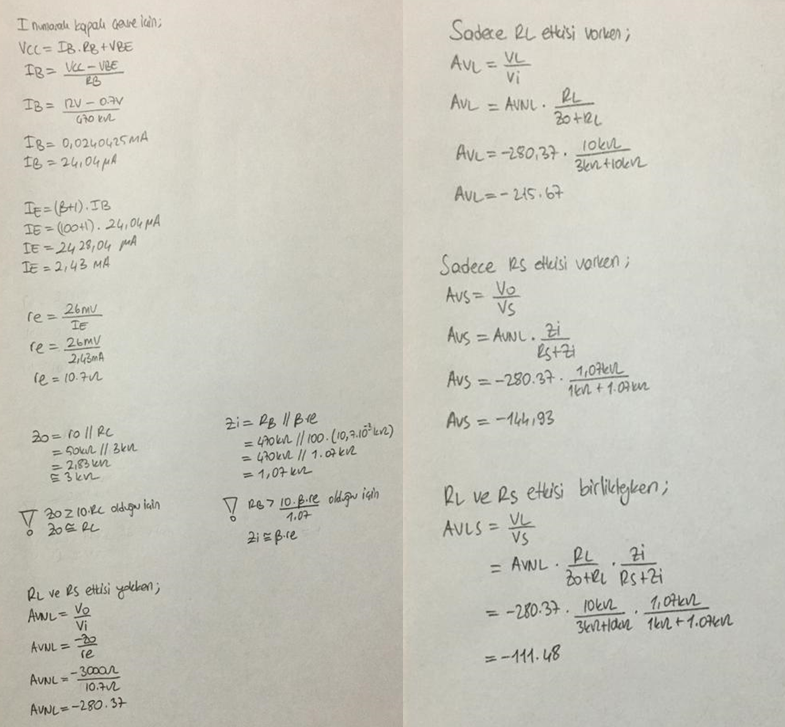 I numaralı kapalı çevre için;
VCC = IB.RB + VBE
IB = VCC - VBE / RB
IB = 12V - 0.7V / 470 kΩ
IB = 0,0240425 mA
IB = 24,04 μA
IE = (β+1). IB
IE = (100+1). 24,04 μA
IE = 2428,04 μA
IE = 2,43 mA
re = 26mV / IE
re = 26mV / 2,43mA
re = 10.7Ω
Zo = ro // RC
= 50kΩ // 3kΩ
= 2,83kΩ
≅ 3kΩ
! Zo ≥ 10.RC olduğu için
Zo ≅ RC
Zi = RB // β.re
= 470kΩ // 100.(10,7.10⁻³kΩ)
= 470kΩ // 1.07kΩ
= 1,07kΩ
! RB > 10.β.re / 1.07 olduğu için
Zi ≅ β.re
RL ve RS etkisi yokken;
AVNL = Vo / Vi
AVNL = -Zo / re
AVNL = -3000Ω / 10.7Ω
AVNL = -280.37
Sadece RL etkisi varken;
AVL = VL / Vi
AVL = AVNL . RL / Zo+RL
AVL = -280,37 . 10kΩ / 3kΩ+10kΩ
AVL = -215.67
Sadece RS etkisi varken;
AVS = Vo / VS
AVS = AVNL . Zi / RS+Zi
AVS = -280.37 . 1,07kΩ / 1kΩ + 1.07kΩ
AVS = -144,93
RL ve RS etkisi birlikteyken;
AVLS = VL / VS
= AVNL . RL / Zo+RL . Zi / RS+Zi
= -280.37 . 10kΩ / 3kΩ+10kΩ . 1,07kΩ / 1kΩ + 1.07kΩ
= -111.48